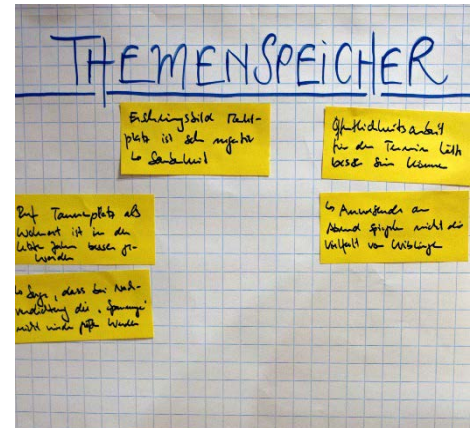 THEMENSPEICHER
Erscheinungsbild Markt-
platz ist sehr negativ
↳ Sauberkeit
Öffentlichkeitsarbeit
für den Termin hätte
besser sein können
Ruf Tannenplatz als
Wohnort ist in den
letzten Jahren besser ge-
worden
↳ Anwesende am
Abend spiegeln nicht die
Vielfalt von Wiblingen
↳ Sorge, dass bei Nach-
verdichtung die
nicht wieder werden